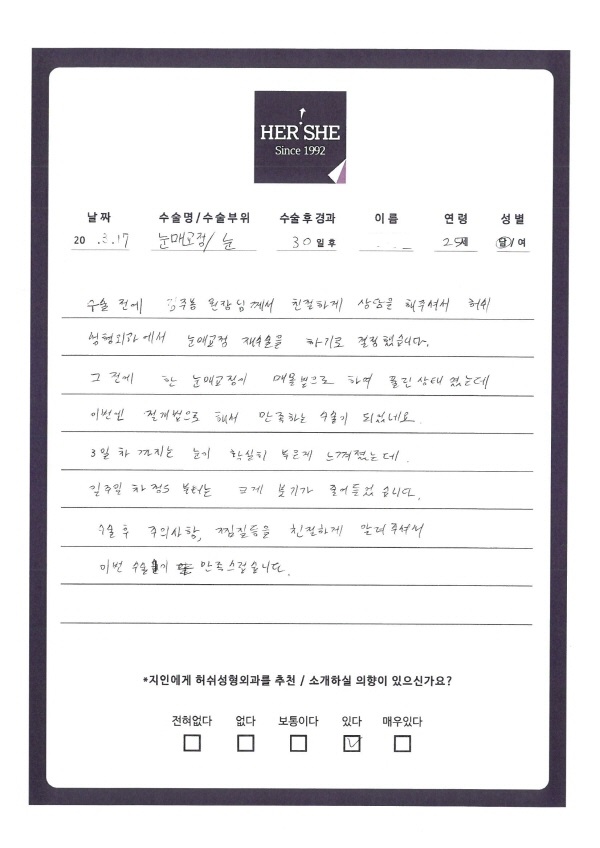 HER SHE
Since 1992
날짜 수술명/수술부위 수술후경과 이름 연령 성별
20 .3.17 눈매교정/ 눈 30일후 25세 남/여
수술 전에 원장님께서 친절하게 상담을 해주셔서 허쉬
성형외과에서 눈매교정 재수술을 하기로 결정했습니다.
그 전에 한 눈매교정이 매몰법으로 하여 풀린상태 였는데
이번엔 절개법으로 해서 만족하는 수술이 되었네요.
3일 차 까지는 눈이 확실히 부은게 느껴졌는데.
일주일 차 정도 부터는 크게 붓기가 줄어들었습니다.
수술 후 주의사항, 찜질등을 친절하게 알려주셔서
이번 수술이 만족스럽습니다.
*지인에게 허쉬성형외과를 추천 / 소개하실 의향이 있으신가요?
전혀없다 없다 보통이다 있다 매우있다